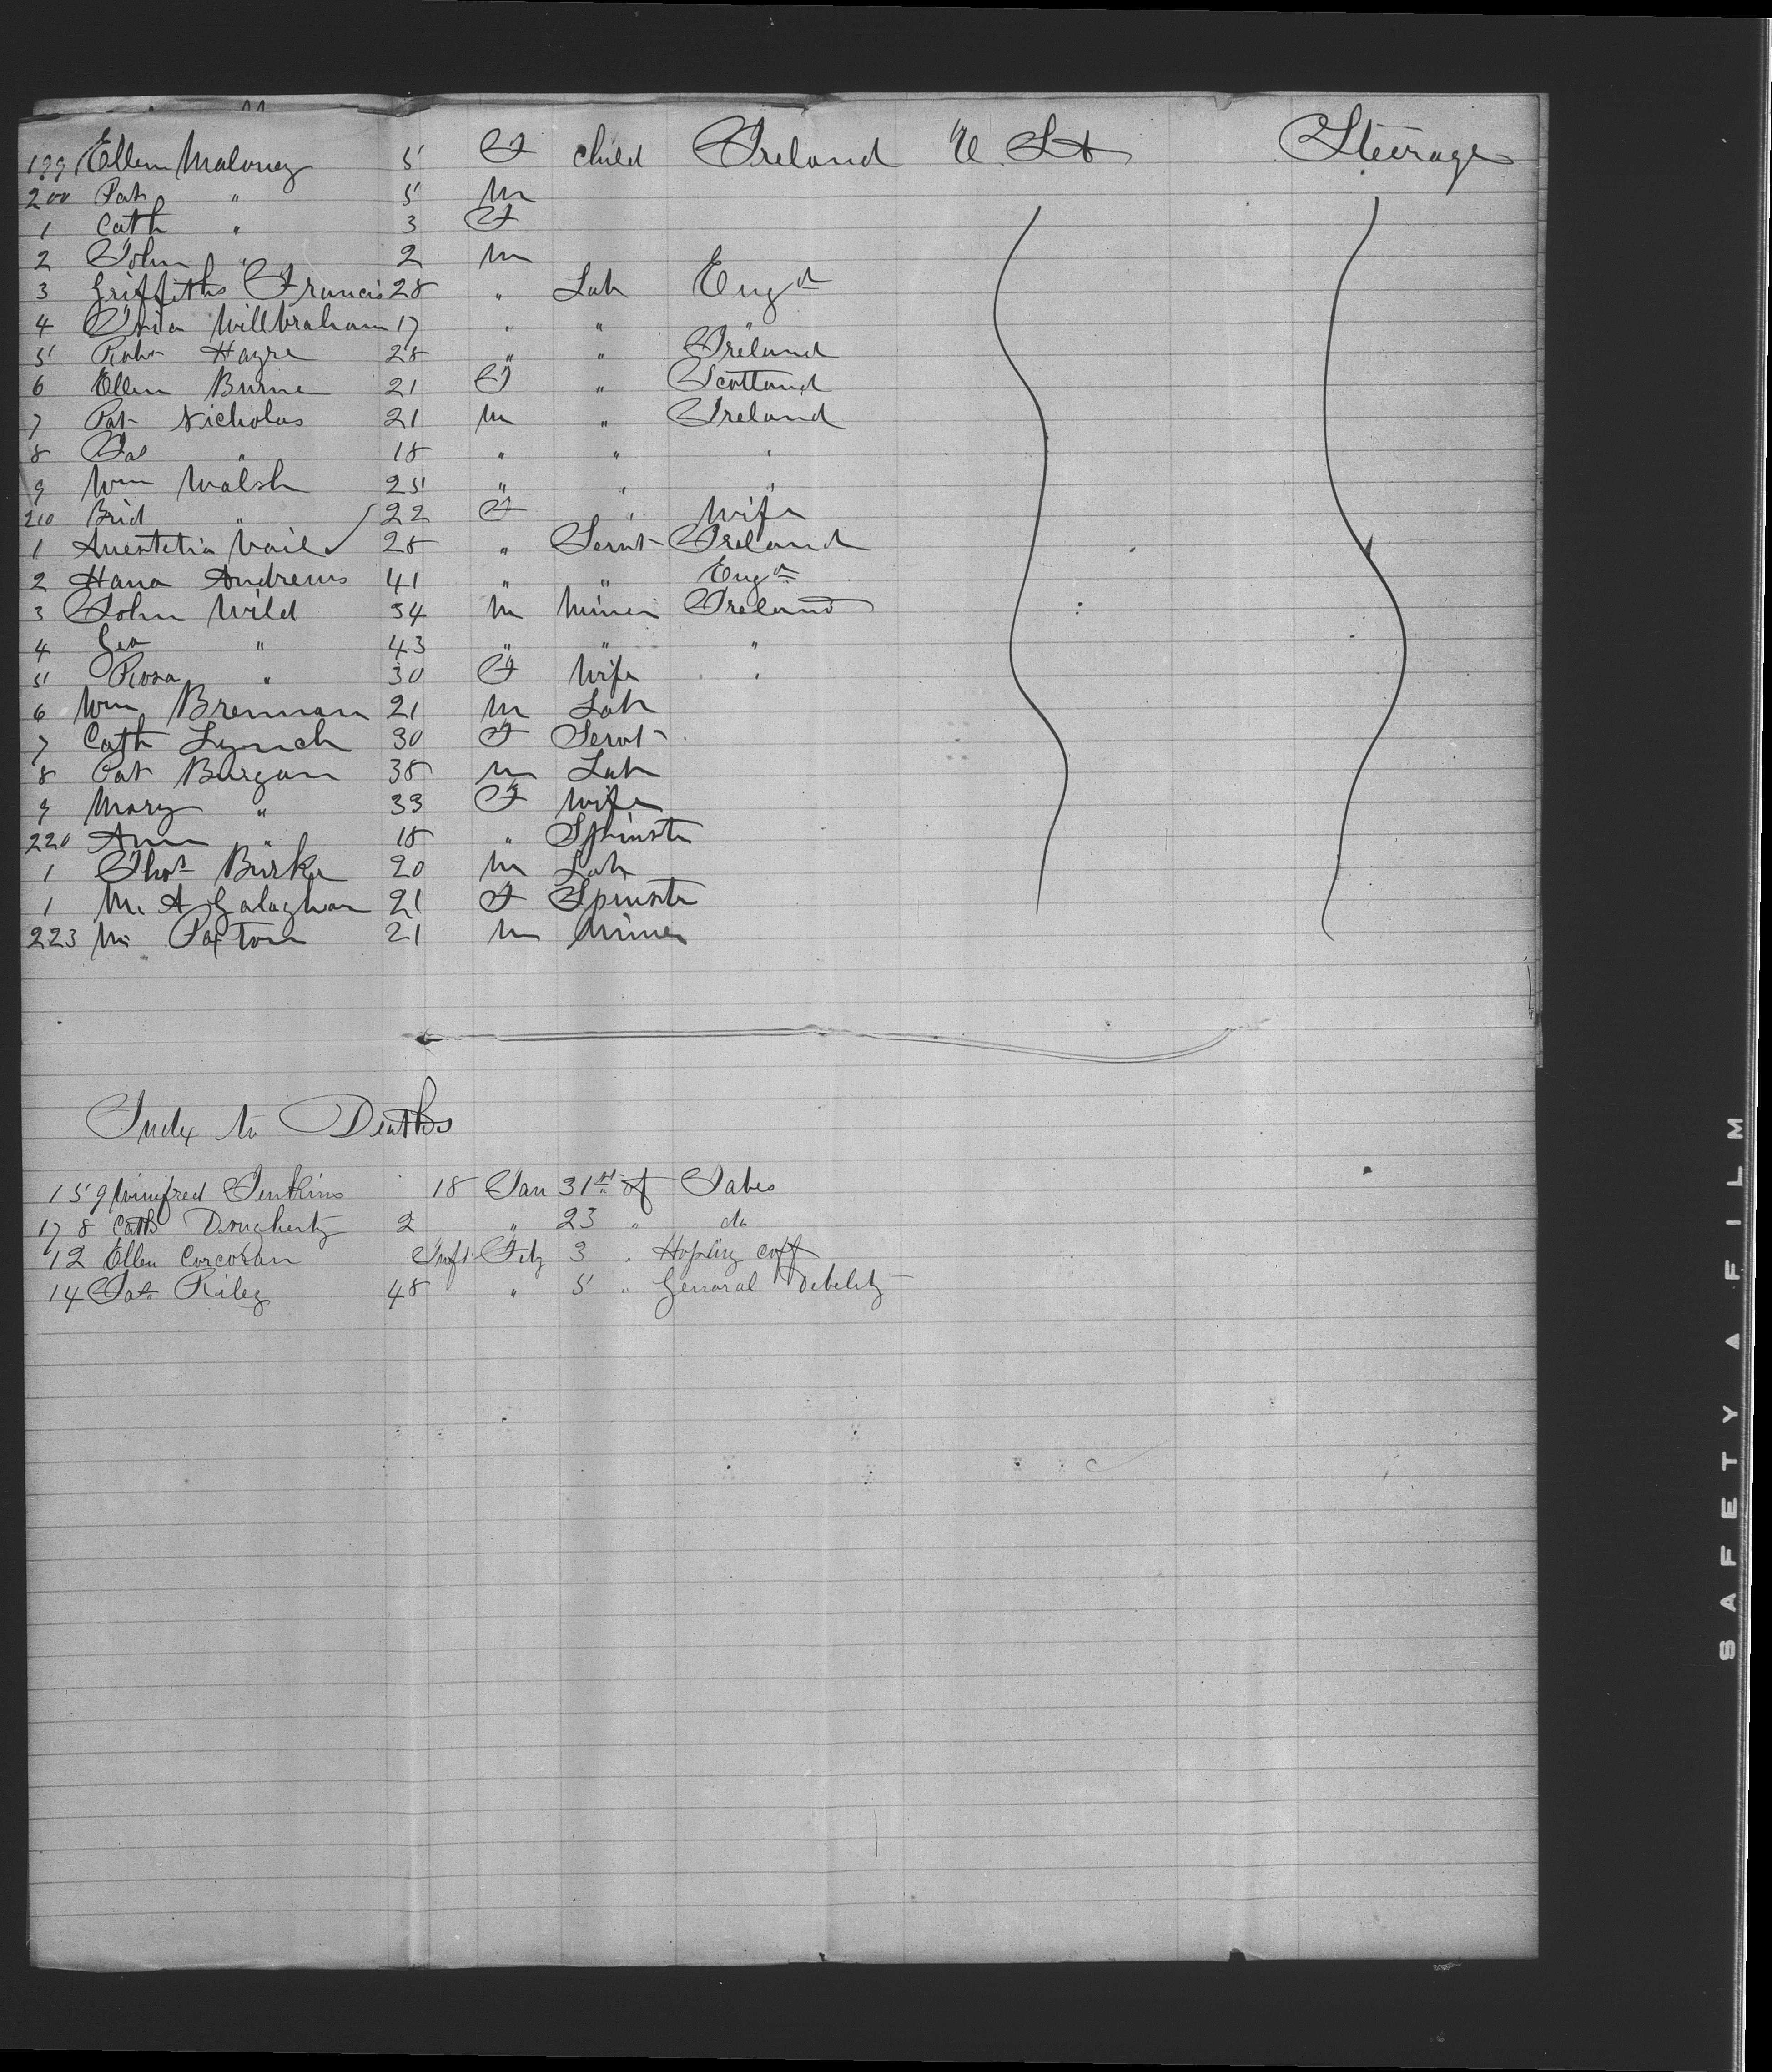 199 Ellen Maloney 5 F child Ireland U. St Steerage
200 Pat " 5 M
1 Cath " 3 F
2 John " 2 M
3 Griffiths Francis 28 " Lab Engd
4 Willbraham 17 " " "
5 Robt Hayre 28 " " Ireland
6 Ellen Burne 21 F " Scotland
7 Pat Nicholas 21 M " Ireland
8 Jas " 18 " " "
9 Wm Walsh 25 " " "
210 Brid " 22 F " Wife
1 Anestetia Vail 28 " Servt Ireland
2 Hana Andrews 41 " " Engd
3 John Wild 54 M Miner Ireland
4 Geo " 43 " " "
5 Rosa " 30 F Wife "
6 Wm Brennan 21 M Lab
7 Cath Lynch 30 F Servt
8 Pat Burgan 38 M Lab
9 Mary " 33 F Wife
220 Ann " 18 " Spinstr
1 Thos Burke 20 M Lab
1 M. A Galaghan 21 F Spinstr
223 M Paxton 21 M Miner
Index to Deaths
159 Winifred Jenkins 18 Jan 31st of Tabes
178 Cath Dougherty 2 " 23 " do
12 Ellen Corcoran Inft Feby 3 " Hopling coff
14 Pat Riley 48 " 5 " General Debelity
SAFETY A FILM